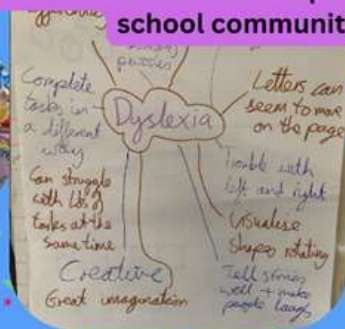 school communit
puzzles
Complete
tasks in
a different
way
Dyslexia
Letters can
seem to move
on the page
Trouble with
left and right
Can struggle
with lots of
tasks at the
same time
Visualise
shapes rotating
Creative
Great imagination
Tell stories
well + make
people laugh